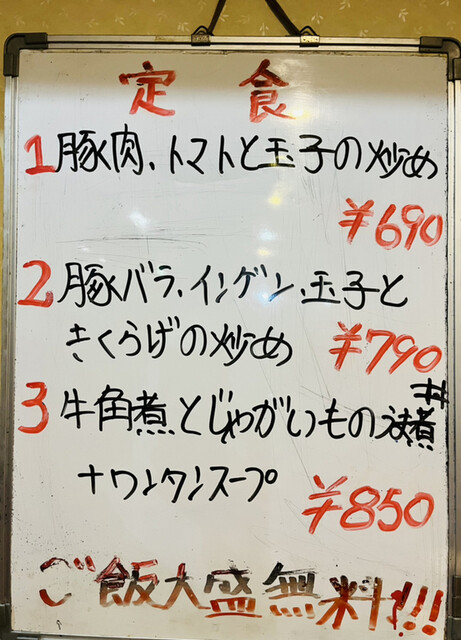 定食
1 豚肉、トマトと玉子の炒め
¥690
2 豚バラ、インゲン、玉子と
きくらげの炒め ¥790
3 牛角煮とじゃがいものうま煮
+ワンタンスープ
¥850
ご飯大盛無料!!!